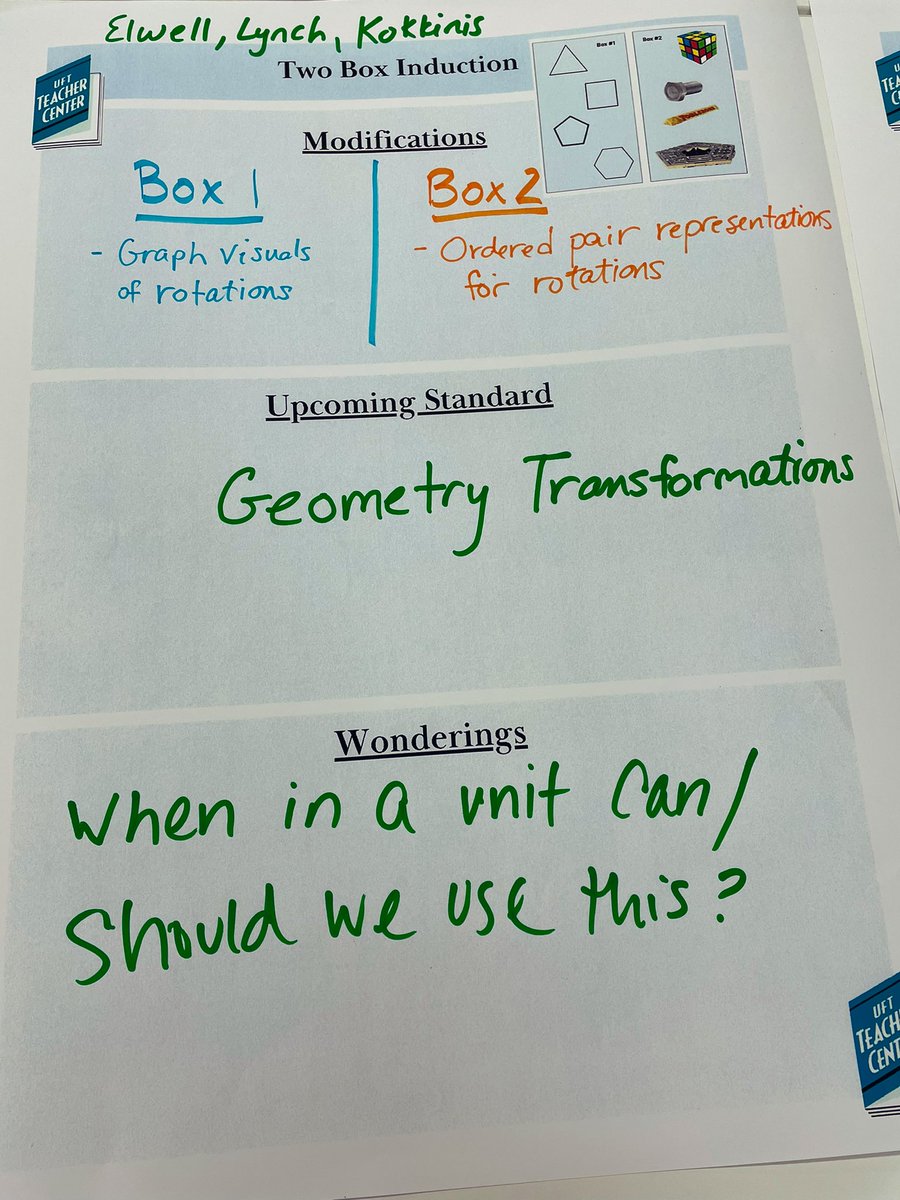 Elwell, Lynch, Kokkinis
UFT
TEACHER
CENTER
Two Box Induction
Box #1
Box #2
TOBLERONE
Modifications
Box 1
- Graph visuals
of rotations
Box 2
- Ordered pair representations
for rotations
Upcoming Standard
Geometry Transformations
Wonderings
When in a unit Can/
Should we use this?
UFT
TEACH
CENT